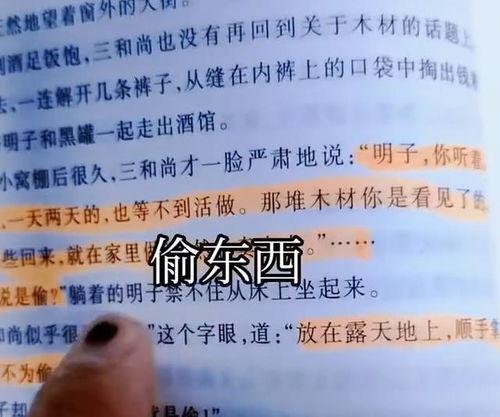 然地望着窗外的大街。
酒足饭饱,三和尚也没有再回到关于木材的话题上
,一连解开几条裤子,从缝在内裤上的口袋中掏出钱
明子和黑罐一起走出酒馆。
小窝棚后很久,三和尚才一脸严肃地说:“明子,你听着
一天两天的,也等不到活做。那堆木材你是看见了的
些回来,就在家里做 。”……
偷东西
说是偷?”躺着的明子禁不住从床上坐起来。
和尚似乎很 ”这个字眼,道:“放在露天地上,顺手
不为偷
就是偷!”